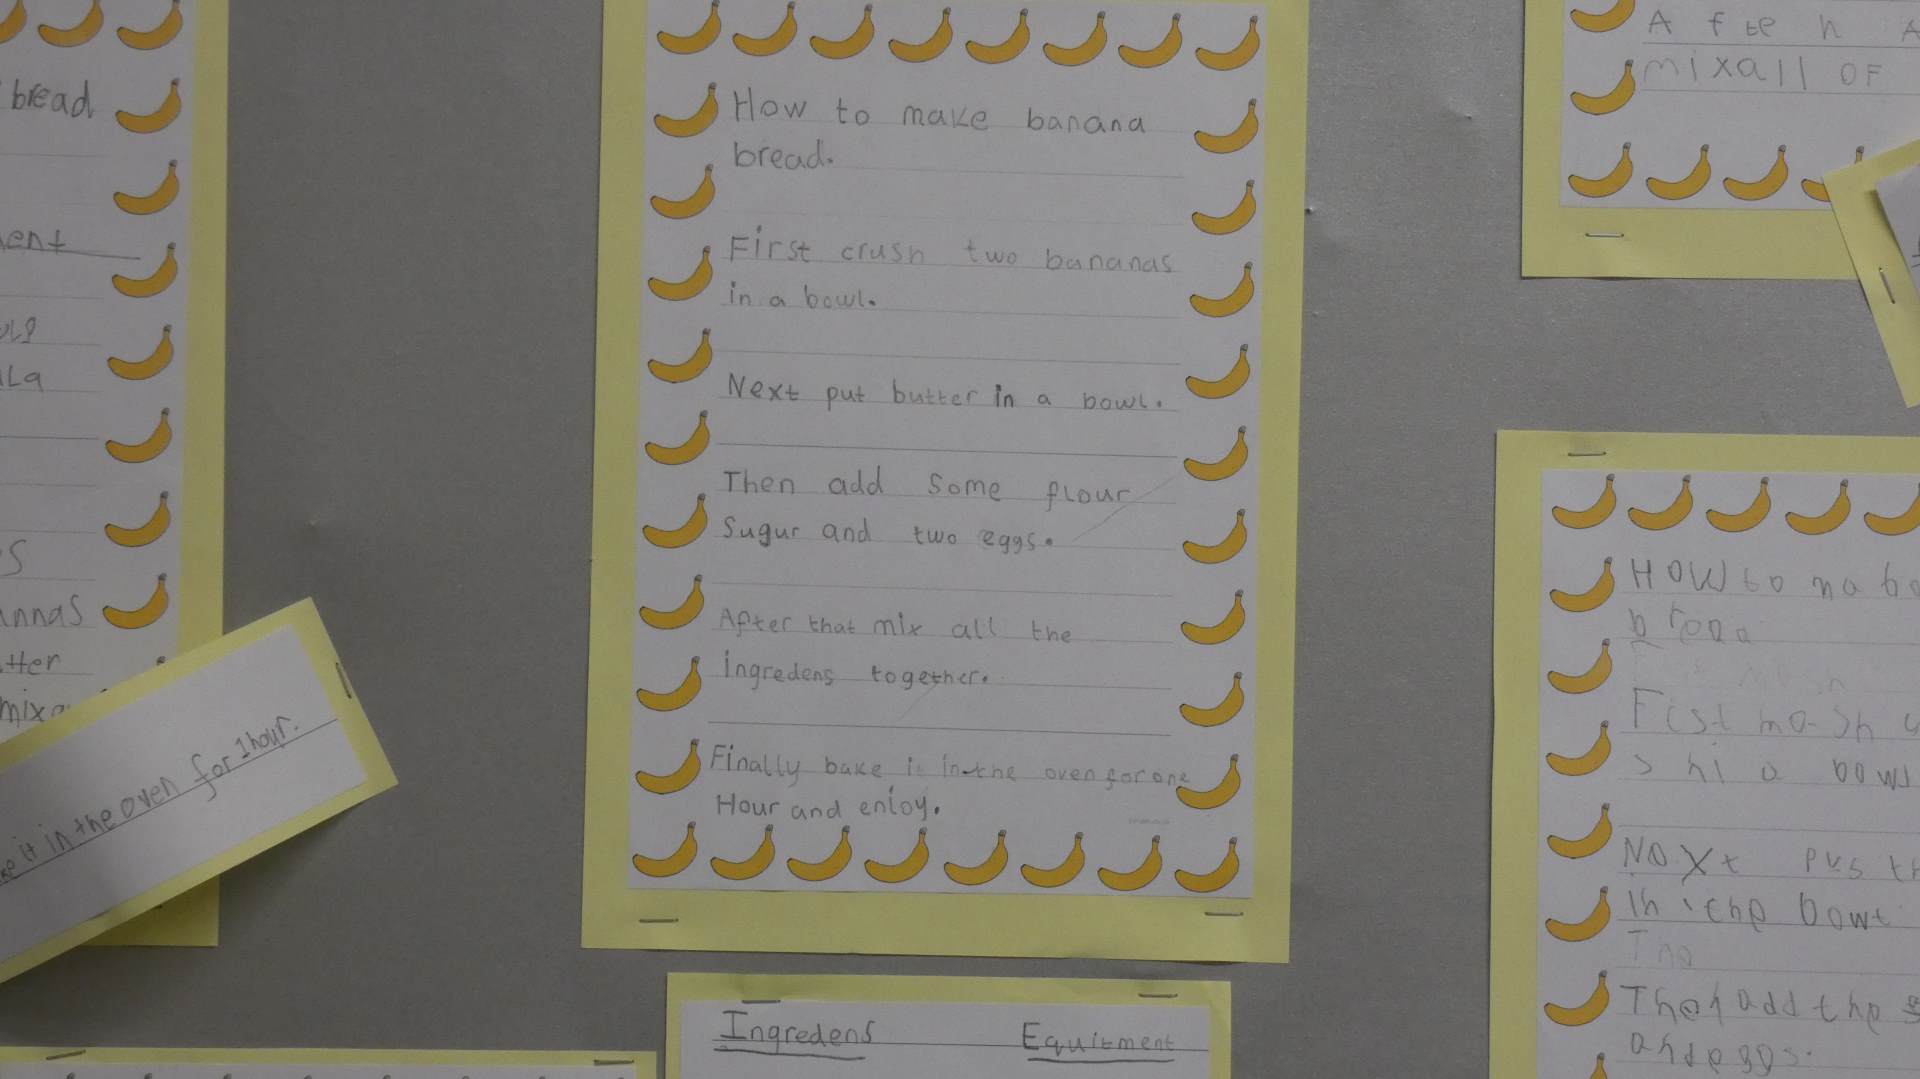 bread
ent
La
s
annas
tter
mix
ke it in the oven for 1 hour.
How to make banana
bread.
First crush two bananas
in a bowl.
Next put butter in a bowl.
Then add some flour
Sugur and two eggs.
After that mix all the
ingredens together.
Finally bake it in the oven for one
Hour and enioy.
Ingredens Equitment
A fte h A
mixall OF
HOW to
Fist mash
bowl
NOXt pus th
in the bowl
Then add the s
and eggs.